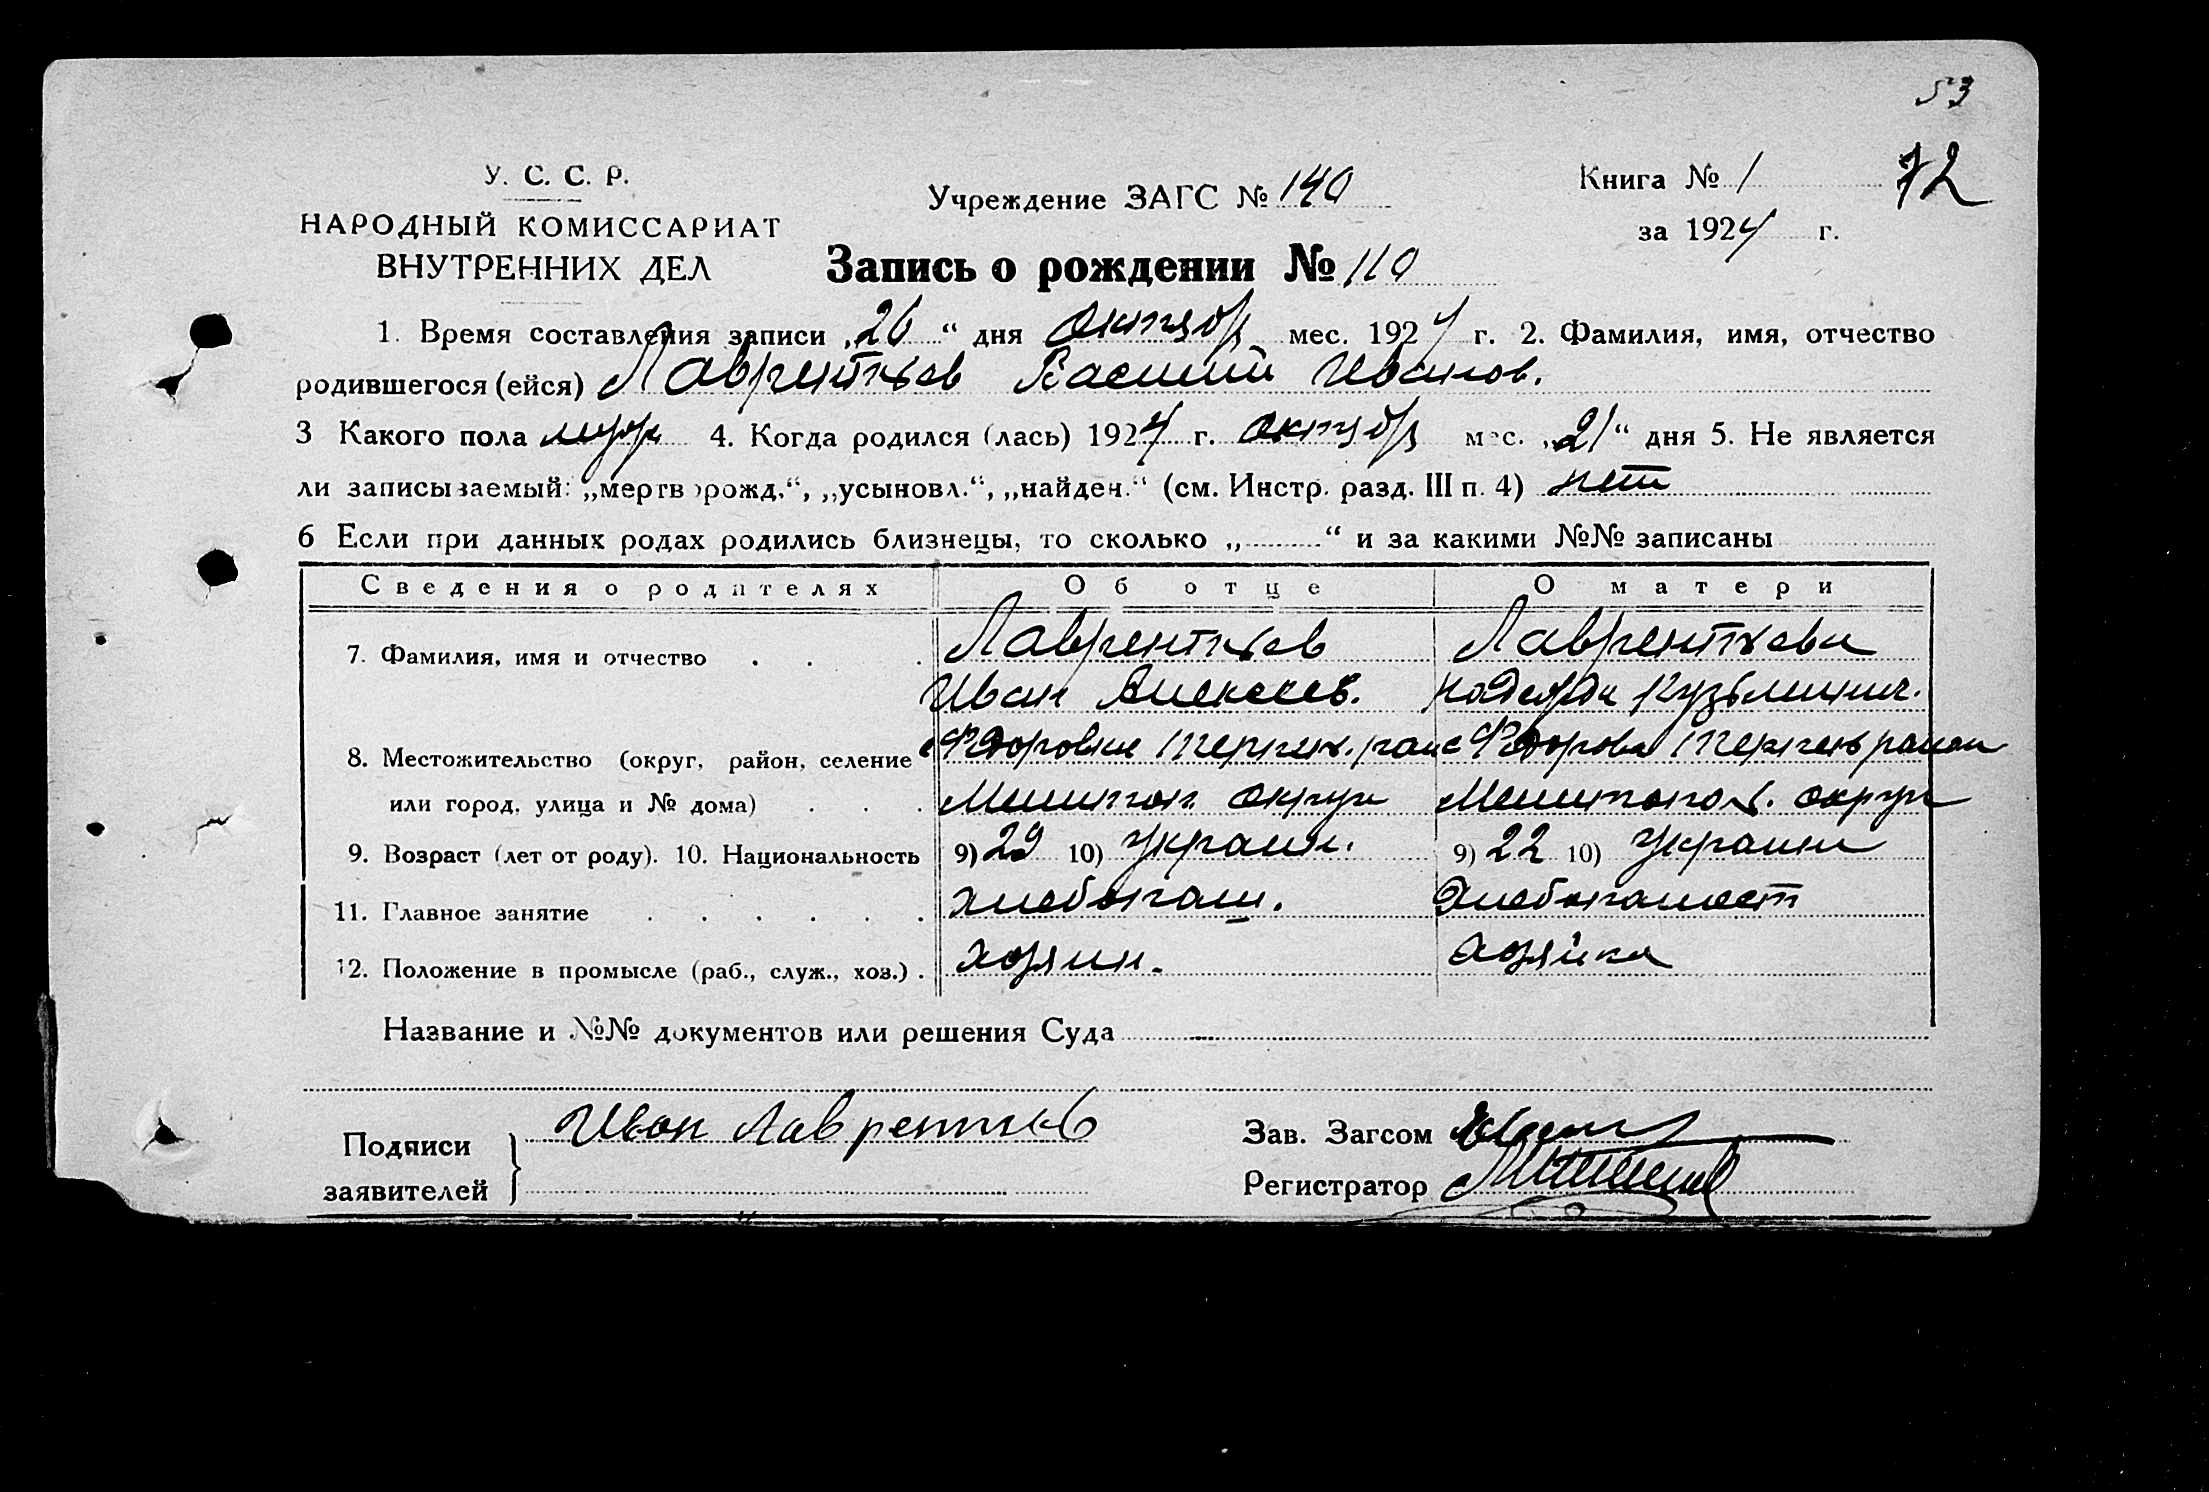 53
У. С. С. Р.
НАРОДНЫЙ КОМИССАРИАТ
ВНУТРЕННИХ ДЕЛ
Учреждение ЗАГС № 140
Книга № 1 72
за 1924 г.
Запись о рождении № 110
1. Время составления записи „26“ дня октябр мес. 1924 г. 2. Фамилия, имя, отчество
родившегося (ейся) Лаврентьев Василий Иванов.
3 Какого пола муж 4. Когда родился (лась) 1924 г. октябр мес. „21“ дня 5. Не является
ли записываемый: „мертворожд.“, „усыновл.“, „найден.“ (см. Инстр. разд. III п. 4) нет
6 Если при данных родах родились близнецы, то сколько „ “ и за какими №№ записаны
Сведения о родителях Об отце О матери
7. Фамилия, имя и отчество Лаврентьев Лаврентьева
Иван Алексеев. Надежда Кузьминич.
8. Местожительство (округ, район, селение с Федоровка район
или город, улица и № дома) округ Мелитопол. округ
9. Возраст (лет от роду). 10. Национальность 9) 29 10) Украин. 9) 22 10) Украин
11. Главное занятие хлебопаш. хлебопашест
12. Положение в промысле (раб., служ., хоз.) хозяин. хозяйка
Название и №№ документов или решения Суда
Подписи Иван Лаврентьев Зав. Загсом
заявителей Регистратор